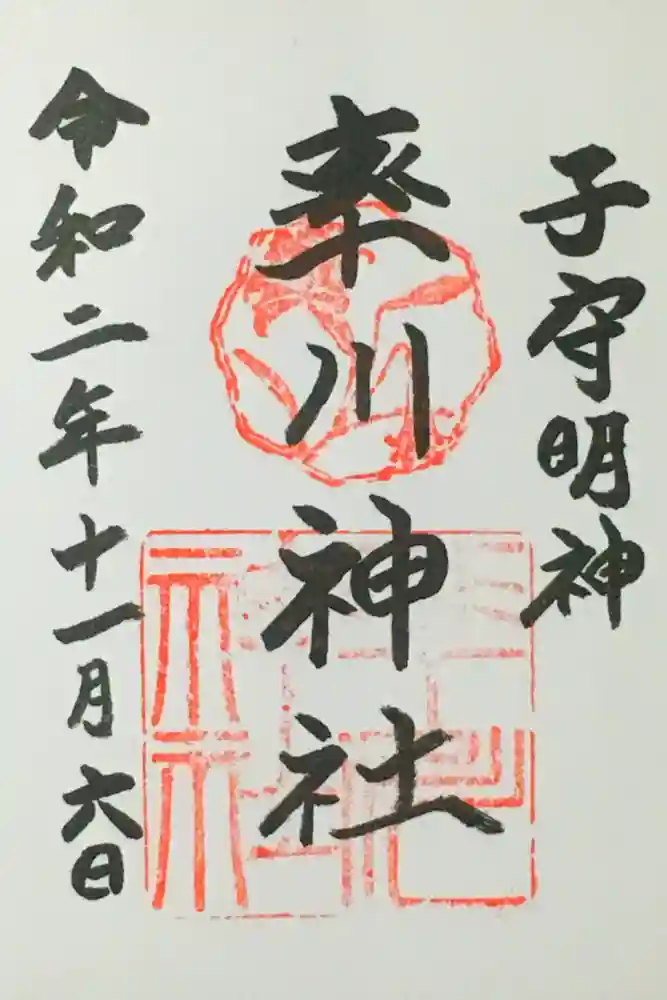 子守明神
率川神社
令和二年十一月六日